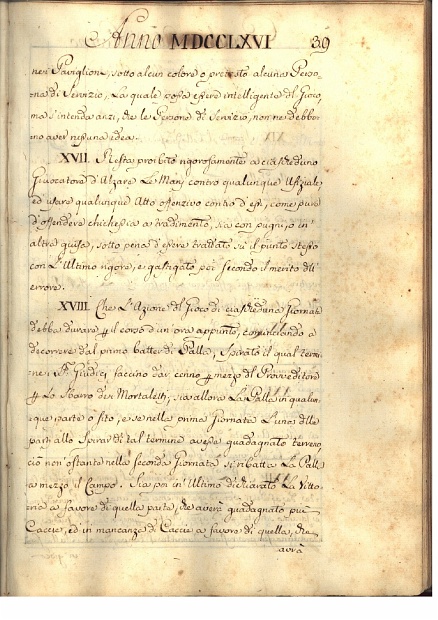 Anno MDCCLXVI 39
nei Paviglioni, sotto alcun colore o pretesto alcuna Perso,
na di Servizio, La quale possa essere intelligente del Gioco,
ma s'intenda anzi, che le Persone di Servizio, non ne debbo-
no aver nessuna idea.
XVII. Resta proibito rigorosamente a ciascheduno
Giuocatore d'Alzare Le Mani contro qualunque Ufiziale,
ed usare qualunque Atto offenzivo contro d'essi, come pure
d'offendere chichessia a tradimento, sia con pugni, o in
altra guisa, sotto pena d'essere trattato su il punto stesso
con L'Ultimo rigore, e gastigato poi secondo il merito dell'
errore.
XVIII. Che L'Azione del Gioco di ciascheduna Giornata
debba durare p il corso d'un ora appunto, cominciando a
decorrere dal primo batter di Palla, Spirato il qual Term
ine i Giudici faccino dar cenno p mezzo del Provveditore
p Lo Sparo dei Mortaletti, sia allora La Palla in qualun
que parte o sito, e se nella prima Giornata L'una delle
parti allo Spirar di tal termine avesse guadagnato terreno
ciò non ostante nella seconda Giornata si ributta La Palla
a mezzo il Campo. Sia poi in Ultimo dichiarato La Vitto-
ria a favore di quella parte, che averà guadagnato più
Caccie, ed in mancanza di Caccie a favore di quella, che
avrà